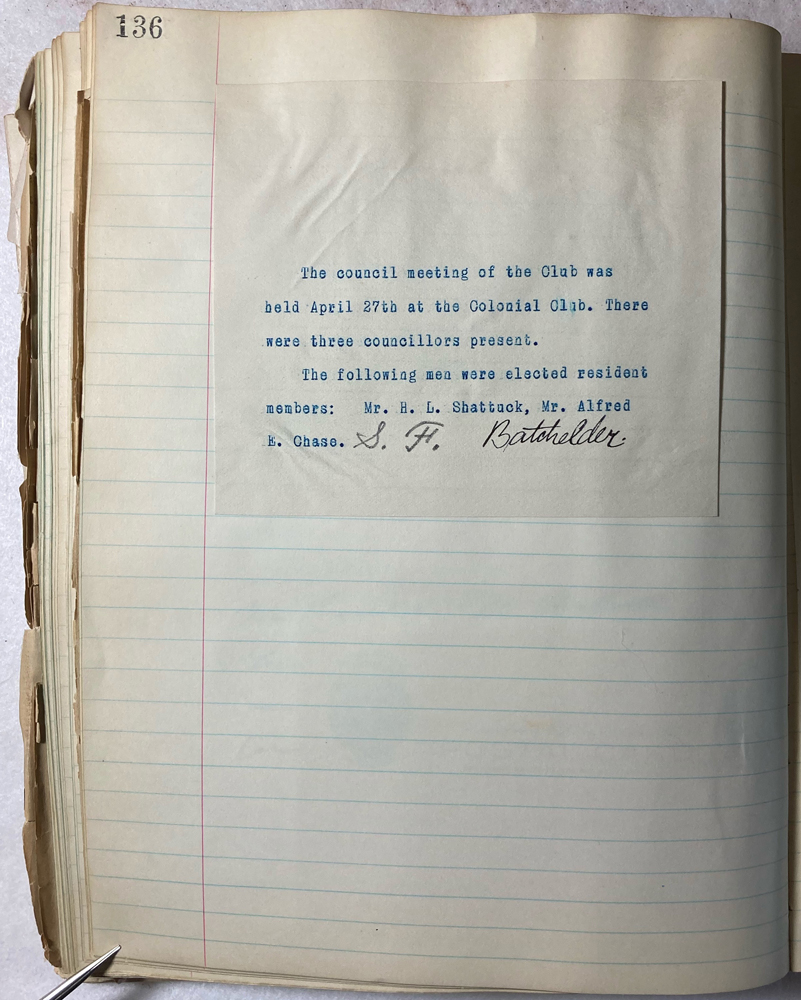 136
The council meeting of the Club was
held April 27th at the Colonial Club. There
were three councillors present.
The following men were elected resident
members: Mr. H. L. Shattuck, Mr. Alfred
E. Chase. S. F. Batchelder.